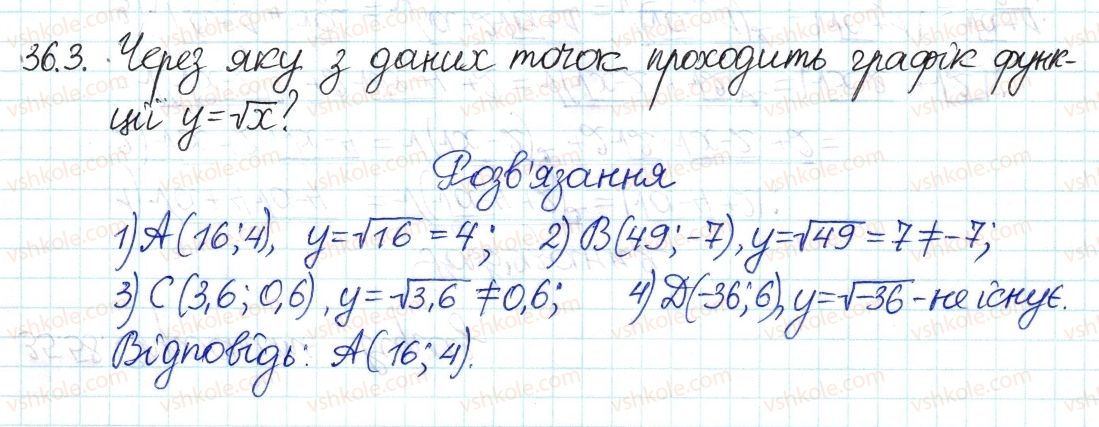 36.3. Через яку з даних точок проходить графік функ-
ції y=√x?
Розв'язання
1) A(16; 4), y=√16 = 4; 2) B(49; -7), y=√49 = 7 ≠ -7;
3) C(3,6; 0,6), y=√3,6 ≠ 0,6; 4) D(-36; 6), y=√-36 - не існує.
Відповідь: A(16; 4).